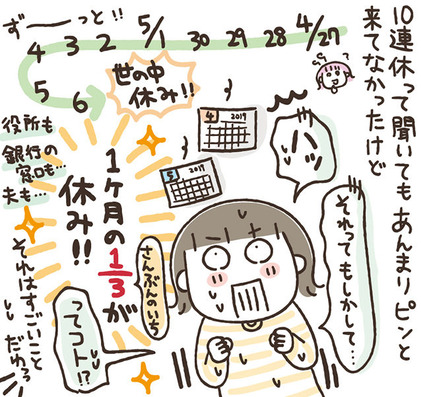 10連休って聞いてもあんまりピンと
来てなかったけど
ず〜〜っと!!
4/27
28
29
30
5/1
2
3
4
5
6
世の中
休み!!
4
2019
5
2019
ハッ
それってもしかして…
1ヶ月の1/3が
休み!!
さんぶんのいち
ってコト!?
役所も
銀行の
窓口も…
夫も…
それはすごいこと
だわっ